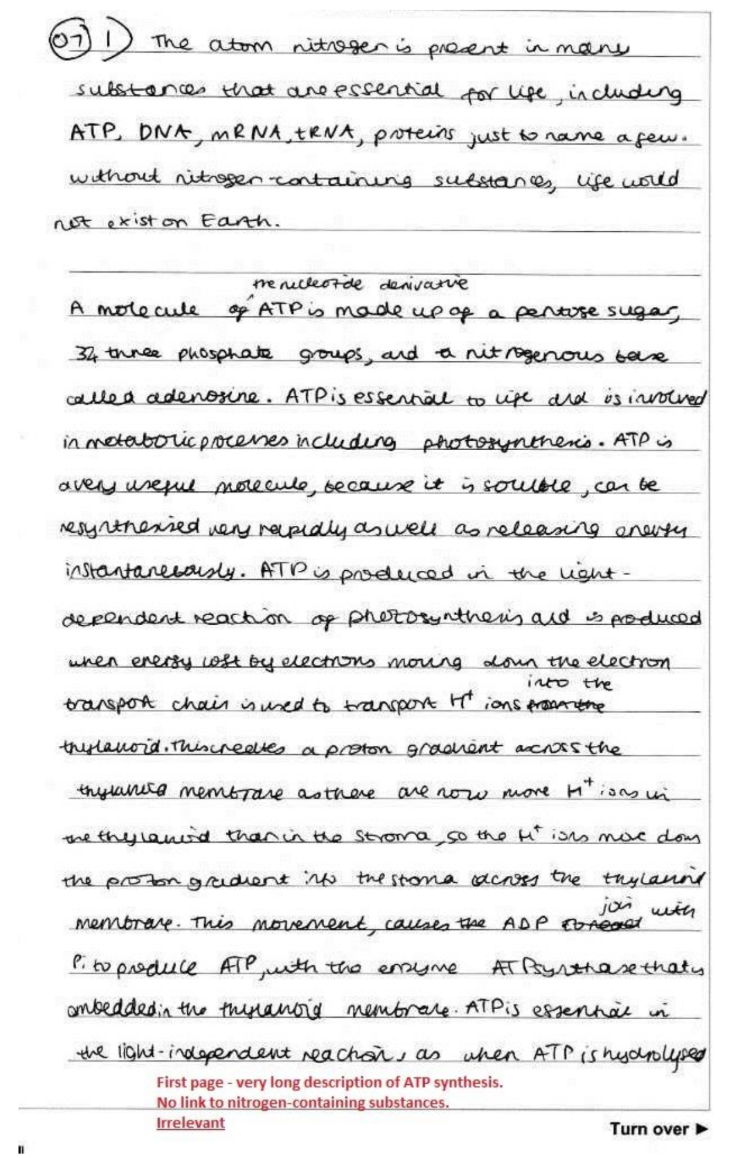 07 1) The atom nitrogen is present in many
substances that are essential for life, including
ATP, DNA, mRNA, tRNA, proteins just to name a few.
without nitrogen-containing substances, life would
not exist on Earth.
the nucleotide derivative
A molecule of ^ ATP is made up of a pentose sugar,
34 three phosphate groups, and a nitrogenous base
called adenosine. ATP is essential to life and is involved
in metabolic processes including photosynthesis. ATP is
a very useful molecule, because it is soluble, can be
resynthesised very rapidly as well as releasing energy
instantaneously. ATP is produced in the light-
dependent reaction of photosynthesis and is produced
when energy lost by electrons moving down the electron
into the
transport chain is used to transport H+ ions from the
thylakoid. This creates a proton gradient across the
thylakoid membrane as there are now more H+ ions in
the thylakoid than in the stroma, so the H+ ions move down
the proton gradient into the stroma across the thylakoid
join with
membrane. This movement, causes the ADP to react
Pi to produce ATP, with the enzyme ATP synthase that is
embedded in the thylakoid membrane. ATP is essential in
the light-independent reaction, as when ATP is hydrolysed
First page - very long description of ATP synthesis.
No link to nitrogen-containing substances.
Irrelevant
Turn over ►